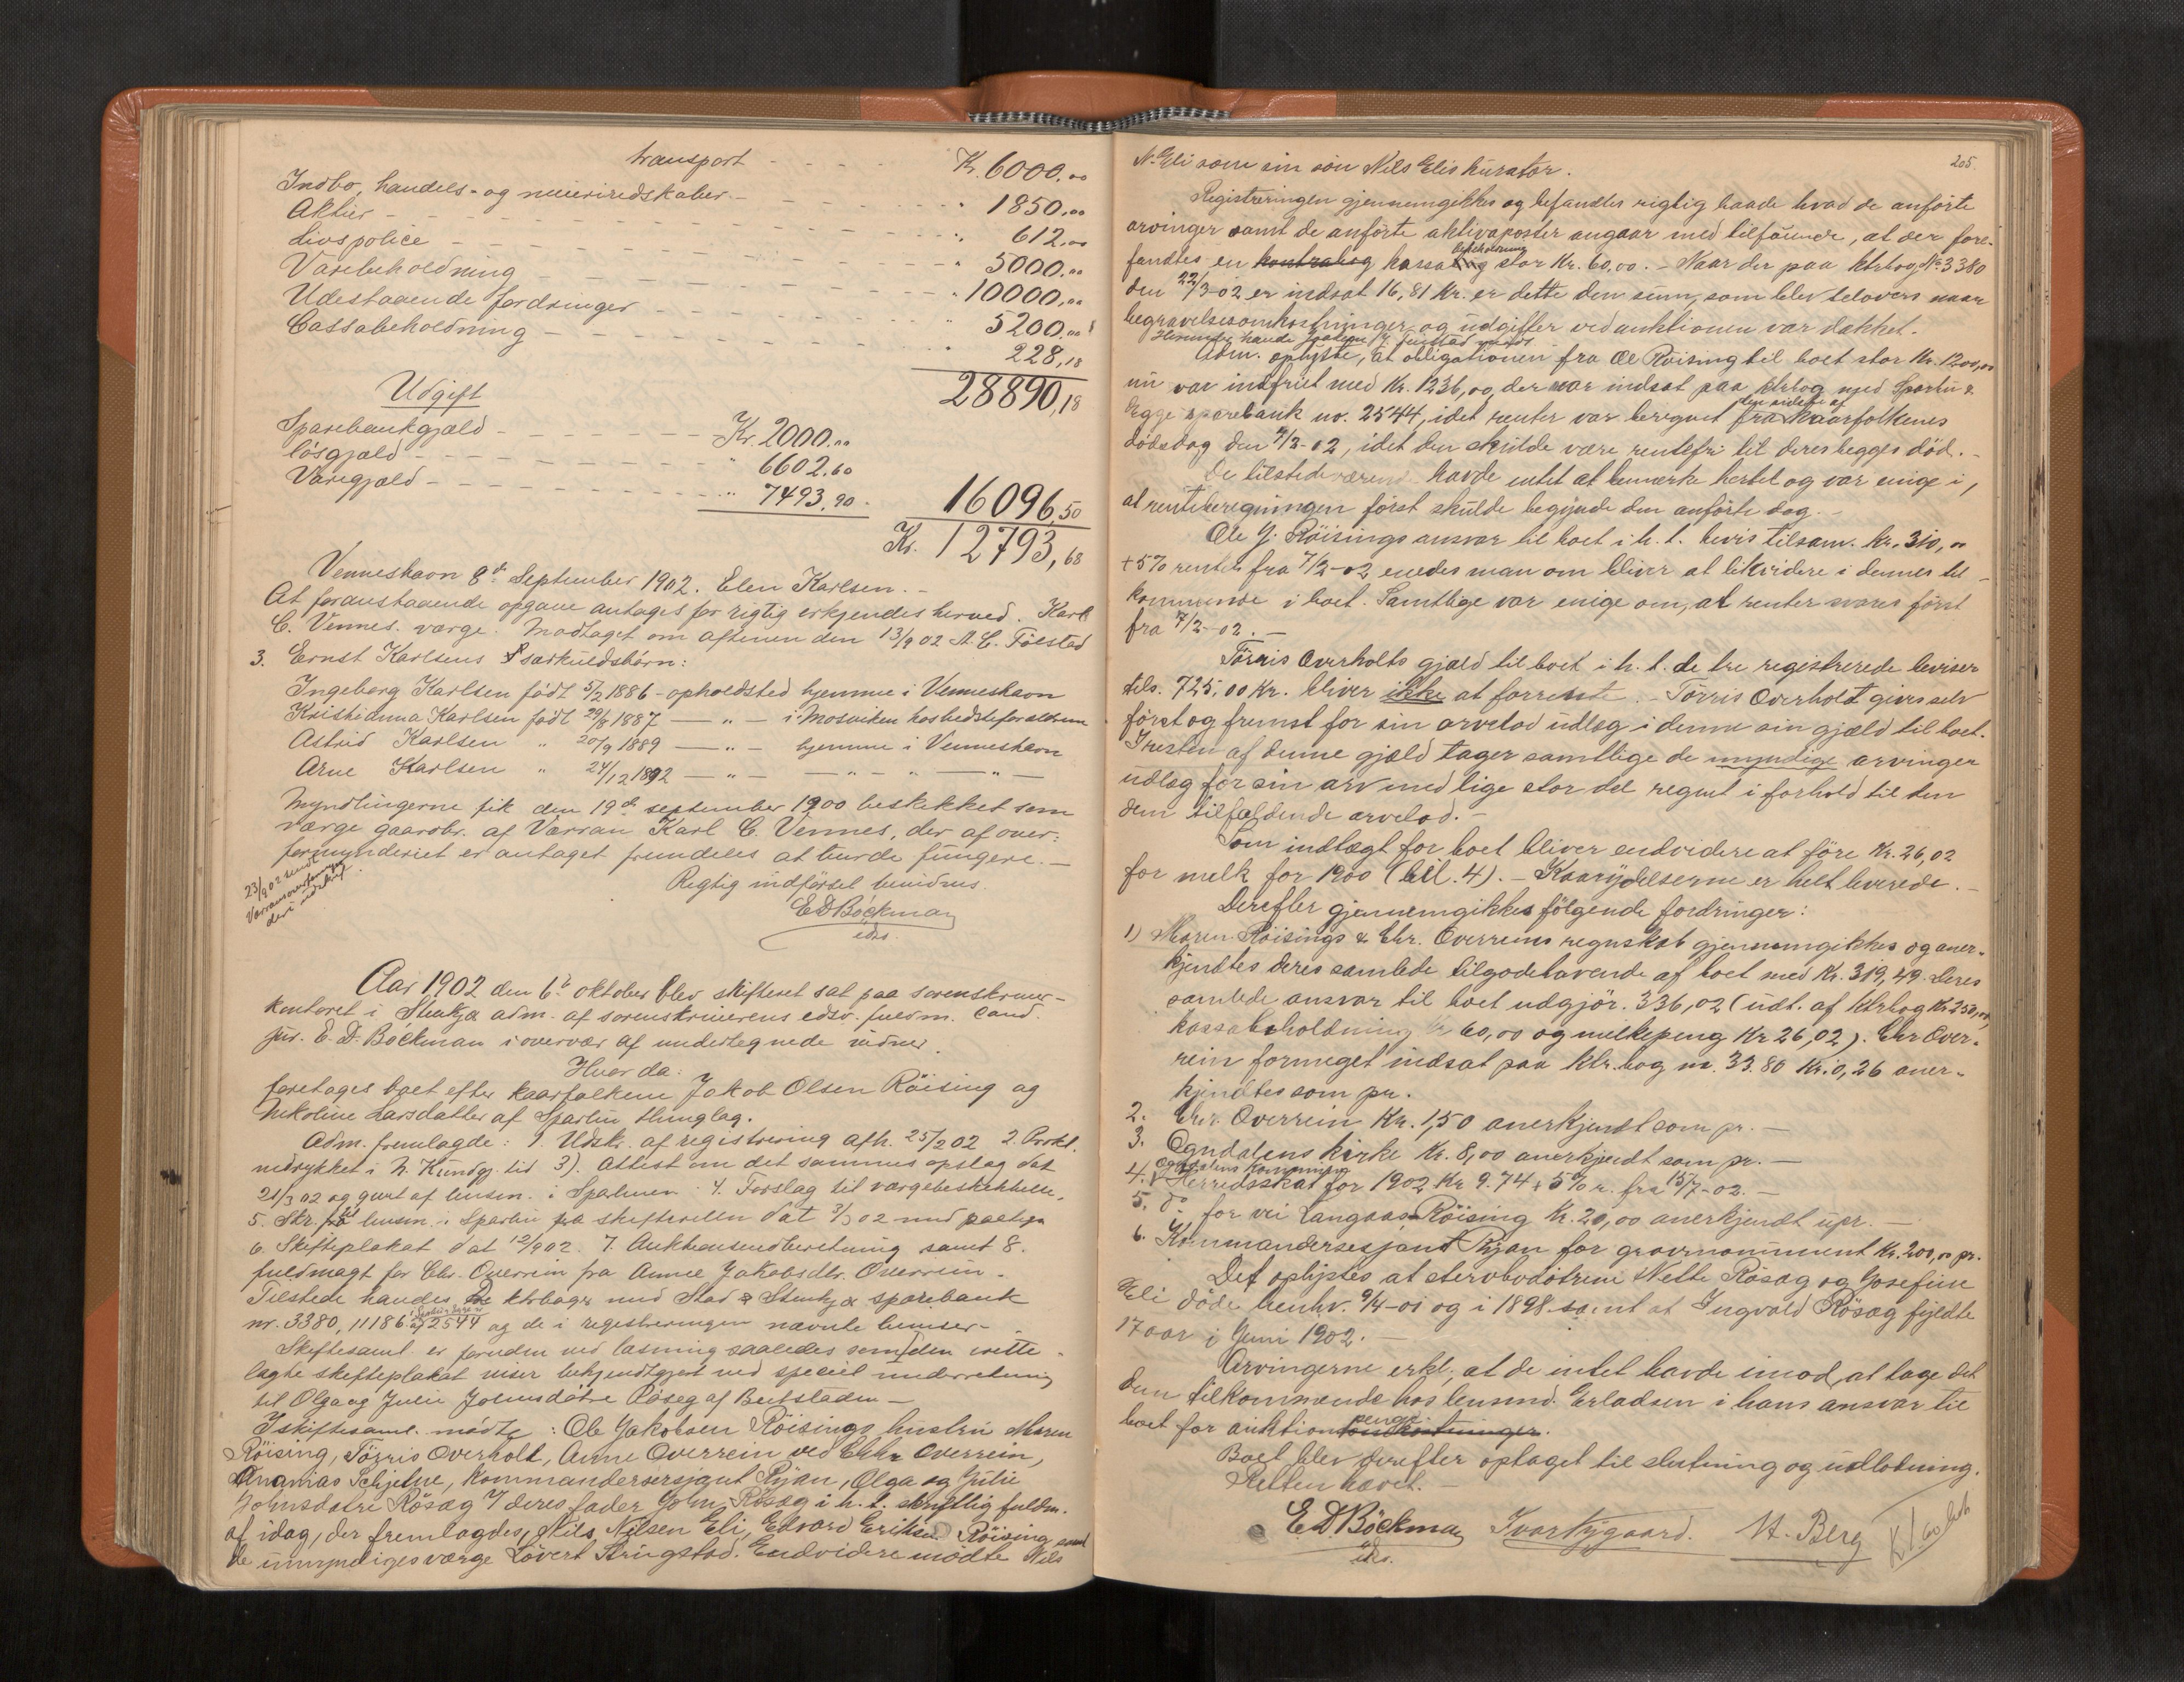 transport - - - - Kr. 6000.00
Indbo, handels- og meieriredskaber - - - - " 1850.00
Aktier - - - - " 612.00
Livspolice - - - - " 5000.00
Varebeholdning - - - - " 10000.00
Udestaaende fordringer - - - - " 5200.00
Cassabeholdning - - - - " 228,18
28890,18
Udgift
Sparebankgjæld - - - - Kr. 2000.00
løsgjæld - - - - " 6602.60
Varegjæld - - - - " 7493.90. 16096,50
Kr. 12793,68
Venneshavn 8de September 1902. Elen Karlsen. -
At foranstaaende opgave antages for rigtig erkjendes herved. Karl
C. Vennes. værge. Modtaget om aftenen den 13/9 02 A. C. Følstad
3. Ernst Karlsens særkuldsbørn:
Ingeborg Karlsen født 5/2 1886 - opholdsted hjemme i Venneshavn
Kristianna Karlsen født 29/8 1887 — " — i Mosviken hos bedsteforældrene
Astrid Karlsen " 20/9 1889 — " — hjemme i Venneshavn
Arne Karlsen " 24/12 1892 — " — — " — " — " —
Myndlingerne fik den 19de september 1900 beskikket som
værge gaardbr. af Værran Karl C. Vennes, der af over-
formynderiet er antaget fremdeles at burde fungere. —
23/9 02 sendt
Værranoverformynderi udskrift.
Rigtig indførsel bevidnes.
E D Böckman
eds.
Aar 1902 den 6te oktober blev skifteret sat paa sorenskriver-
kontoret i Stenkjær adm. af sorenskriverens edsv. fuldm. cand.
jur. E. D. Böckman i overvær af undertegnede vidner.
Hvor da:
foretoges boet efter kaarfolkene Jakob Olsen Röising og
Nekoline Larsdatter af Sparbu thinglag.
Adm. fremlagde: 1. Udskr. af registrering afh. 25/2 02 2. Prokl.
indrykket i N. Kundgj. tid 3). Attest om det sammes opslag dat
21/3 02 og gjort af lensm. i Sparbu. 4. Forslag til værgebeskikkelse.
5. Skr. fra lensm. i Sparbu fra skifteretten dat 3/3 02 med paategn
6. Skifteplakat dat 12/9 02. 7. Auktionsindberetning samt 8.
fuldmagt for Chr. Overrein fra Anne Jakobsdtr. Overrein.
Tilstede havdes de ktrbøger med Stod & Stenkjær sparebank
nr. 3380, 11186 og 2544 og de i registreringen nævnte beviser.
Skiftesaml. er foruden ved læsning saaledes som den irette-
lagte skifteplakat viser bekjendtgjort ved speciel underretning
til Olga og Julie Johnsdötre Rösæg af Beitstaden —
I skiftesaml. mödte: Ole Jakobsen Röisings hustru Maren
Röising, Törris Overholt, Anne Overrein ved Chr. Overrein,
Ananias Schjelne, kommandersersjant Ryan, Olga og Julie
Johnsdatre Rösæg v/ deres fader John Rösæg i h. t. skriftlig fuldm.
af idag, der fremlagdes, Nils Nilsen Eli, Edvard Eriksen Röising samt
de umyndiges værge Lövert Stugstad. Endvidere mödte Nils
205.
N. Eli som sin sön Nils Elis kurator.
Registreringen gjennemgikkes og befandtes rigtig baade hvad de anförte
arvinger samt de anförte aktivaposter angaar med tilföiende, at der fore-
fandtes en kontrabog kassabeholdning stor Kr. 60,00. - Naar der paa ktrbog No 3380
den 22/3-02 er indsat 16,81 Kr. er dette den sum, som blev tilovers naar
begravelsesomkostninger og udgifter ved auktionen var dækket.
Adm. oplyste, at obligationen fra Ole Röising til boet stor Kr. 1200,00
nu var indfriet med Kr. 1236, og der var indsat paa ktrbog med Sparbu &
Egge sparebank nr. 2544, idet renter var beregnet fra den sidste af kaarfolkenes
dödsdag den 7/2-02, idet den skulde være rentefri til deres begges död. -
De tilstedeværende havde intet at bemærke hertil og var enige i,
at renteberegningen först skulde begynde den anförte dag. -
Ole J. Röisings ansvar til boet i h. t. bevis tilsam. Kr. 310,00
+ 5% renter fra 7/2-02 enedes man om bliver at likvidere i dennes til-
kommende i boet. Samtlige var enige om, at renter svares först
fra 7/2-02. -
Törris Overholts gjæld til boet i h. t. de tre registrerede beviser
tils. 725,00 Kr. bliver ikke at forrente. - Törris Overholdt gives selv
först og fremst for sin arvelod udlæg i denne sin gjæld til boet.
I resten af denne gjæld tager samtlige de myndige arvinger
udlæg for sin arv med lige stor del regnet i forhold til den
dem tilfaldende arvelod. -
Som indtægt for boet bliver endvidere at före Kr. 26,02
for melk for 1900 (bil. 4). - Kaarydelserne er helt leverede. -
Derefter gjennemgikkes fölgende fordringer:
1) Maren Röisings & Chr. Overreins regnskab gjennemgikkes og aner-
kjendtes deres samlede tilgodehavende af boet med Kr. 319,49. Deres
samlede ansvar til boet udgjör. 336,02 (udt. af ktrbog Kr 250,00,
kassabeholdning Kr 60,00 og melkepeng Kr 26,02). Chr Over-
rein formeget indsat paa ktr.bog nr. 33.80 Kr. 0,26 aner-
kjendtes som pr.
2. Chr. Overrein Kr. 1,50 anerkjendt som pr. —
3. Ogndalens kirke Kr. 8,00 anerkjendt som pr. —
4. Ogndalens kommune Herredsskat for 1902 Kr 9.74 + 5% r. fra 15/7-02. —
5. do for vei Langaas-Röising Kr. 20,00 anerkjendt upr. —
6. Kommandersersjant Ryan for gravmonument Kr. 200,00 pr.
Det oplystes at stervbodötrene Nette Rösæg og Josefine
Eli döde henhv. 9/4-01 og i 1898. samt at Ingvald Rösæg fyldte
17 aar i Juni 1902. —
Arvingerne erkl. at de intet havde imod, at tage det
dem tilkommende hos lensmd. Erlandsen i hans ansvar til
boet for auktionspenge.
Boet blev derefter optaget til slutning og udlodning.
Retten hævet. -
E. D. Böckman Ivar Nygaard. M. Berg
eds.